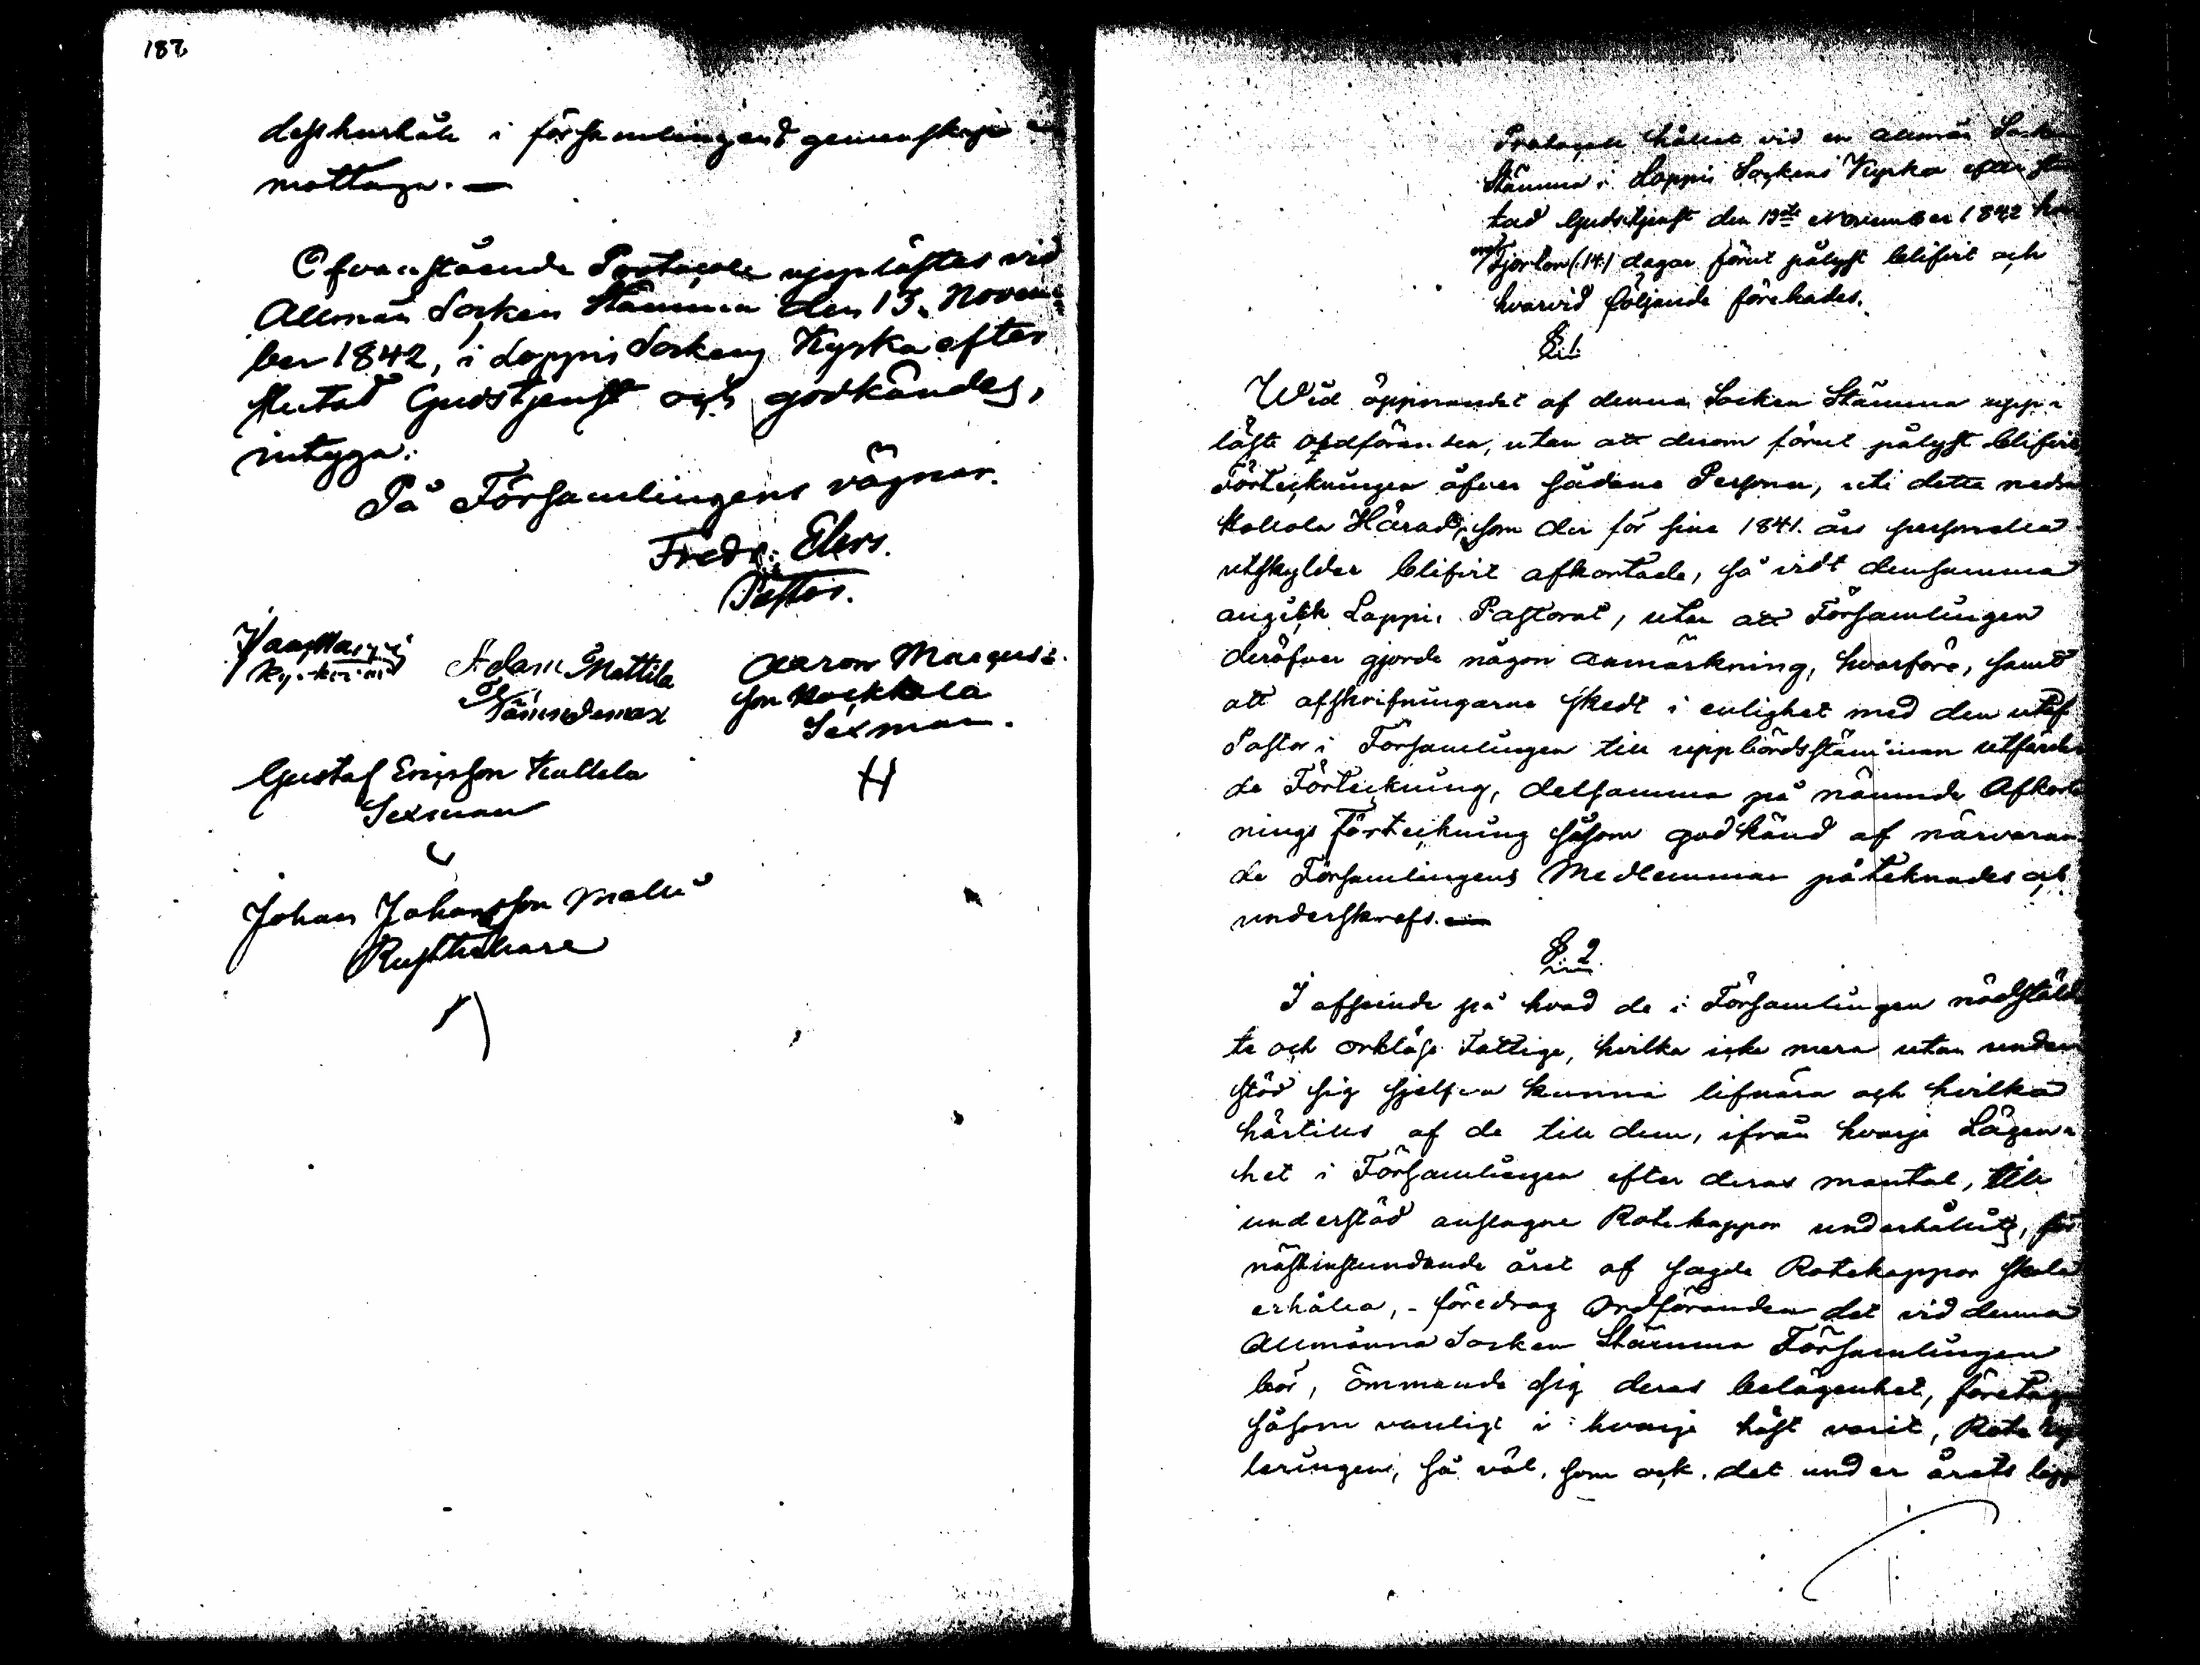 182
desshushåle i församlingens gemenskap
mottaga. —
Ofvanstående Protocoll upplästes vid
Allmän Socken Stämma den 13. Novem-
ber 1842, i Loppis Sockens Kyrka efter
slutad Gudstjenst och godkändes,
intyga.
På Församlingens vägnar.
Fredr: Elers.
Pastor.
Adam Mattila
Nämndeman
Aaron Marcus-
son Kockkala
Sexman.
Gustaf Ericsson Kallela
Sexman
Johan Johansson Malu
Rusthållare
Protocoll hållet vid en allmän Socken
Stämma i Loppis Sockens Kyrka efter slu
tad Gudstjenst den 13de November 1842 hvar
om Fjorton (14) dagar förut pålyst blifvit och
hvarvid följande förehades.
§ 1.
Wid öppnandet af denna Socken Stämma upp-
läste Ordföranden, utan att derom förut pålyst blifvit
Förteckningen öfver sådane Personer, uti detta nedra
Hollola Härad, som der för sina 1841 års personella
utskylder blifvit afkortade, så vidt densamma
angick Loppis Pastorat, utan att Församlingen
deröfver gjorde någon anmärkning, hvarföre, samt
att afskrifningarne skedt i enlighet med den utaf
Pastor i Församlingen till uppbördsstämman utfärda
de Förteckning, detsamma på nämnde Afkort
nings Förteckning såsom godkänd af närvaran
de Församlingens Medlemmar påteknades och
underskrefs. —
§ 2.
I afseende på hvad de i Församlingen nödstäld
te och orklöse Fattige, hvilka icke mera utan under
stöd sig sjelfva kunna lifnära och hvilka
härtills af de till dem, ifrån hvarje Lägen-
het i Församlingen efter deras mantal, till
understöd anslagne Rotekappor underhållits, för
nästinstundande året af sagde Rotekappor skola
erhålla, - föredrog Ordföranden det vid denna
Allmänna Socken Stämma Församlingen
bör, ömmande sig deras belägenhet, företaga
såsom vanligt i hvarje höst varit, Rote reg
leringen, så väl, som ock det under årets lopp